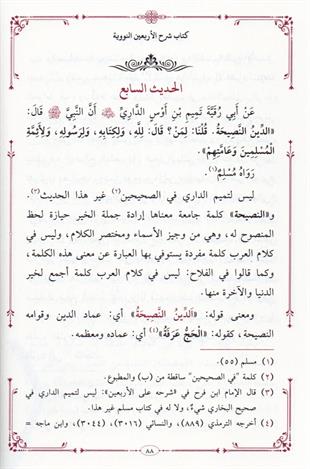 كتاب شرح الأربعين النووية
الحديث السابع
عَنْ أَبِي رُقَيَّةَ تَمِيمِ بْنِ أَوْسٍ الدَّارِيِّ ﷺ أَنَّ النَّبِيَّ ﷺ قَالَ:
«الدِّينُ النَّصِيحَةُ. قُلْنَا: لِمَنْ؟ قَالَ: لِلَّهِ، وَلِكِتَابِهِ، وَلِرَسُولِهِ، وَلِأَئِمَّةِ
الْمُسْلِمِينَ وَعَامَّتِهِمْ».
رَوَاهُ مُسْلِمٌ(١).
ليس لتميم الداري في الصحيحين(٢) غير هذا الحديث(٣).
و«النصيحة» كلمة جامعة معناها إرادة جملة الخير حيازة لحظ
المنصوح له، وهي من وجيز الأسماء ومختصر الكلام، وليس في
كلام العرب كلمة مفردة يستوفي بها العبارة عن معنى هذه الكلمة،
وكما قالوا في الفلاح: ليس في كلام العرب كلمة أجمع لخير
الدنيا والآخرة منها.
ومعنى قوله: «اَلدِّينُ النَّصِيحَةُ» أي: عماد الدين وقوامه
النصيحة، كقوله: «الْحَجُّ عَرَفَةُ»(٤) أي: عماده ومعظمه.
(١) مسلم (٥٥).
(٢) كلمة "في الصحيحين" ساقطة من (ب) والمطبوع.
(٣) قال الإمام ابن فرح في «شرحه على الأربعين»: ليس لتميم الداري في
صحيح البخاري شيءٌ، ولا له في كتاب مسلم غير هذا.
(٤) أخرجه الترمذي (٨٨٩)، والنسائي (٣٠١٦)، و(٣٠٤٤)، وابن ماجه =
٨٨